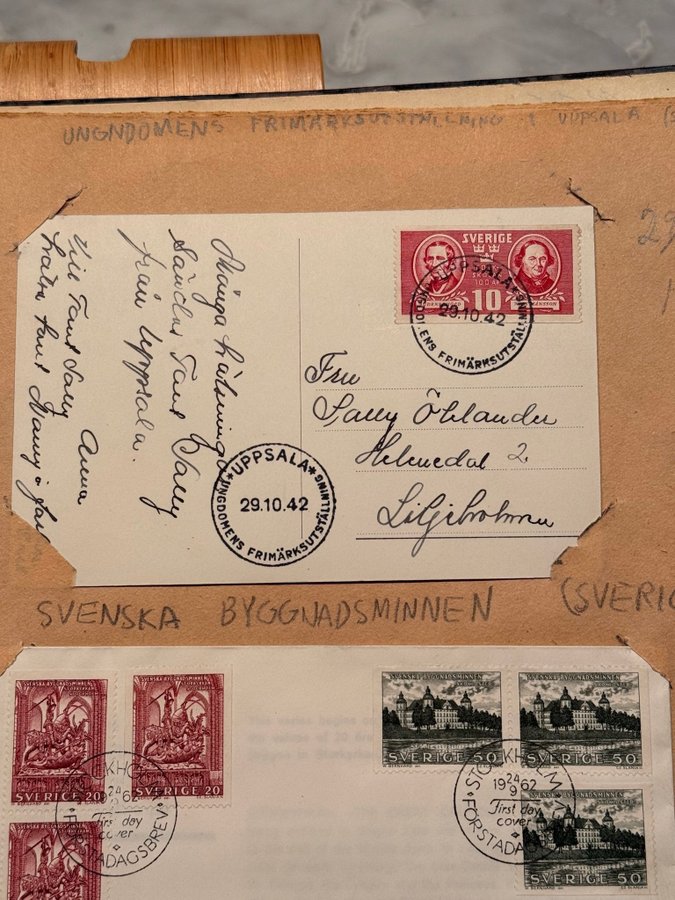 UNGNDOMENS FRIMÄRKSUTSTÄLLNING I UPPSALA (S
29
1
SVERIGE
SKOLA
100 ÅR
10
UPPSALA
29.10.42
UNGDOMENS FRIMÄRKSUTSTÄLLNING
Många hälsningar
Sändes Tant Sally
från Uppsala.
Till Tant Sally Anna
Fru
Sally Öhlander
Helenedal 2
Liljeholmen
*UPPSALA*
29.10.42
UNGDOMENS FRIMÄRKSUTSTÄLLNING
SVENSKA BYGGNADSMINNEN (SVERIG
SVENSKA BYGGNADSMINNEN
SVERIGE 20
SVENSKA BYGGNADSMINNEN
SVERIGE 20
SVENSKA BYGGNADSMINNEN
SVERIGE 50
SVENSKA BYGGNADSMINNEN
SVERIGE 50
STOCKHOLM
24
19 62
9
First day
cover
FÖRSTADAGSBREV
STOCKHOLM
24
19 62
9
First day
cover
FÖRSTADA
SVENSKA BYGGNADSMINNEN
SVERIGE 50